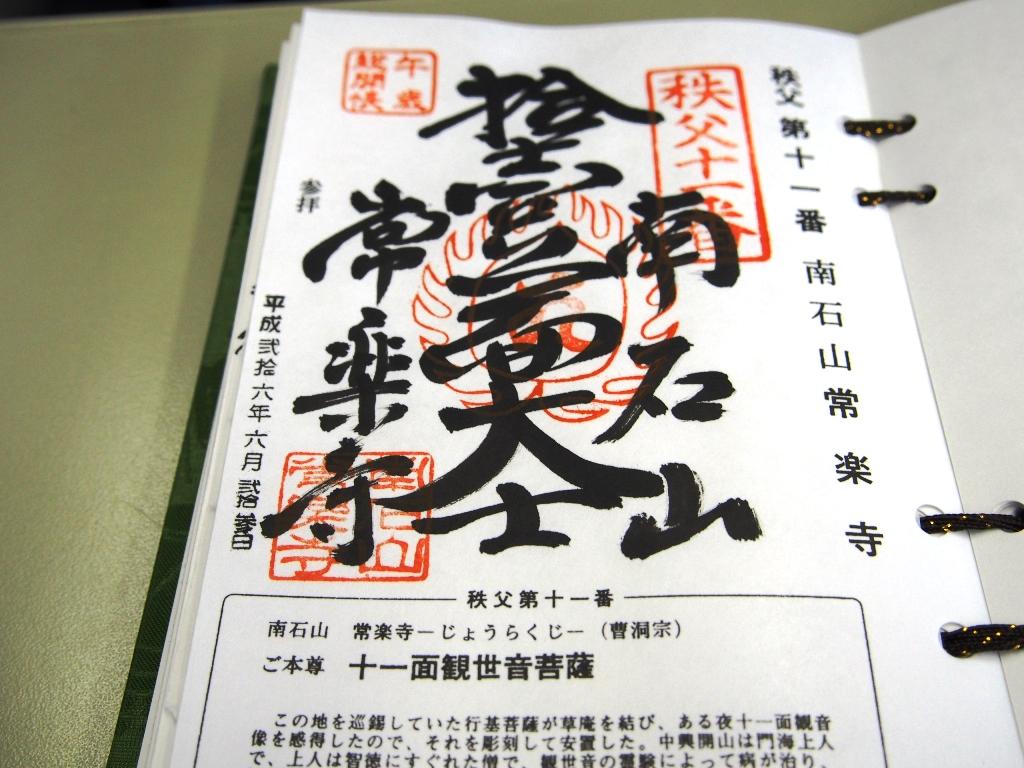 秩父第十一番 南石山常楽寺
秩父十一番
午歳
総開帳
南石山
拾壱面大士
常楽寺
参拝
平成弐拾六年六月弐拾参日
南石山
常楽寺
秩父第十一番
南石山 常楽寺―じょうらくじ―(曹洞宗)
ご本尊 十一面観世音菩薩
この地を巡錫していた行基菩薩が草庵を結び、ある夜十一面観音
像を感得したので、それを彫刻して安置した。中興開山は門海上人
で、上人は智徳にすぐれた僧で、観世音の霊験によって病が治り、